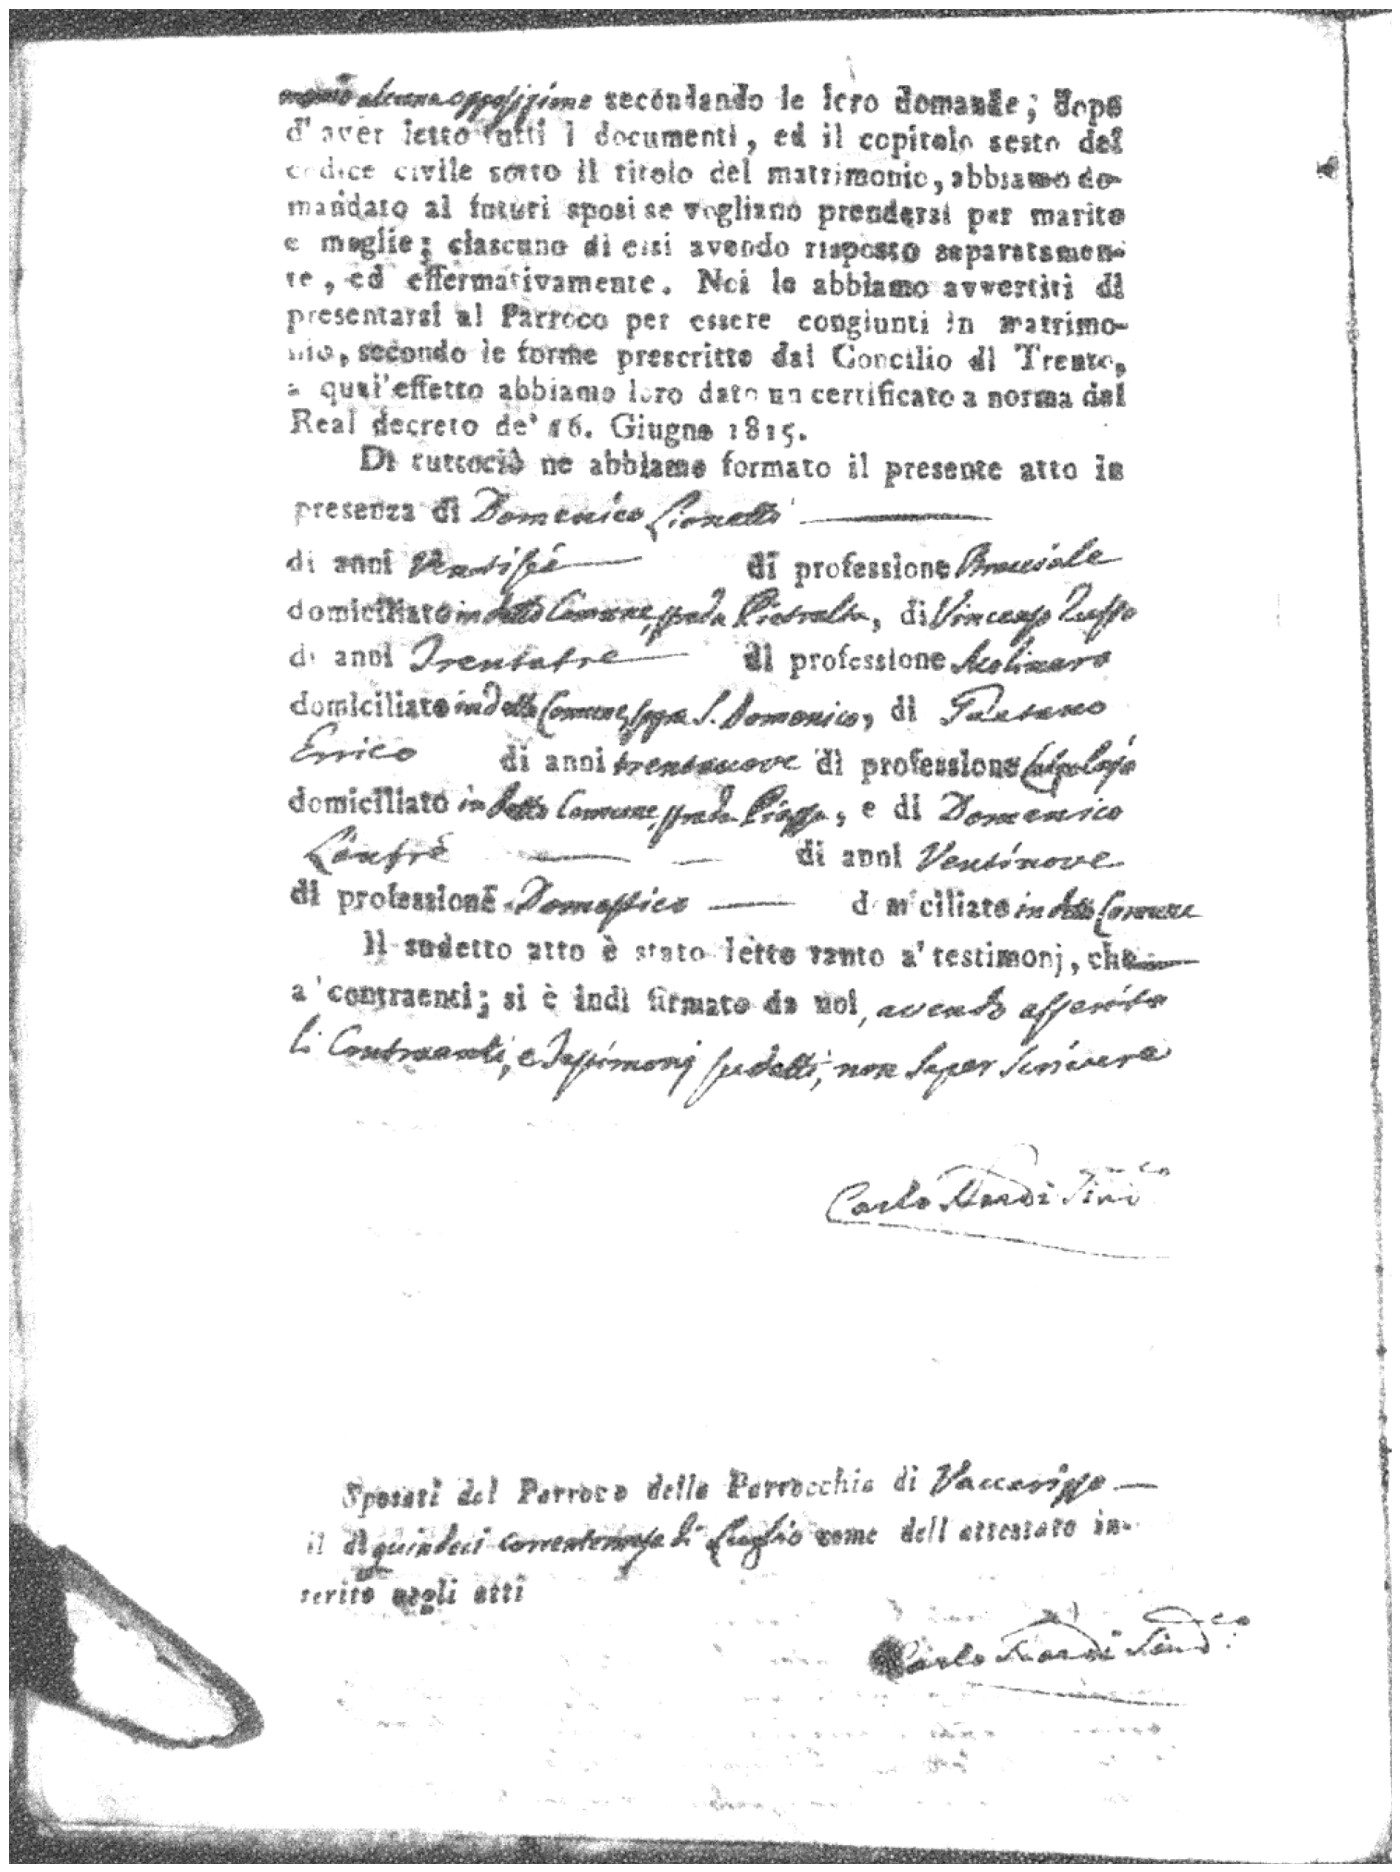 monio alcuna opposizione secondando le loro domande; dopo
d'aver letto tutti i documenti, ed il copitolo sesto del
codice civile sotto il titolo del matrimonio, abbiamo do-
mandato al futuri sposi se vogliano prendersi per marito
e moglie; ciascuno di essi avendo risposto separatamen-
te, ed effermativamente. Noi lo abbiamo avvertiti di
presentarsi al Parroco per essere congiunti in matrimo-
nio, secondo le forme prescritte dal Concilio di Trento,
a qual'effetto abbiamo loro dato un certificato a norma del
Real decreto de' 16. Giugno 1815.
Di tuttociò ne abbiamo formato il presente atto in
presenza di Domenico Lionetti
di anni Ventisei di professione Bracciale
domiciliato in detto Comune, strada Pietralta, di Vincenzo Zuppo
di anni Trentatre di professione Molinaro
domiciliato in detto Comune, sopra S. Domenico, di Gaetano
Errico di anni trentanove di professione Calzolajo
domiciliato in detto Comune, strada Piazza, e di Domenico
Lanfrè di anni Ventinove
di professione Domestico domiciliato in detto Comune
Il sudetto atto è stato letto tanto a' testimonj, che
a' contraenti; si è indi firmato da noi, avendo asserito
li Contraenti, e Testimonj sudetti, non saper scrivere
Carlo Sind.co
Sposati dal Parroco della Parrocchia di Vaccarizzo
il dì quindeci corrente mese di Luglio come dell attestato in-
serito negli atti
Carlo Sind.co